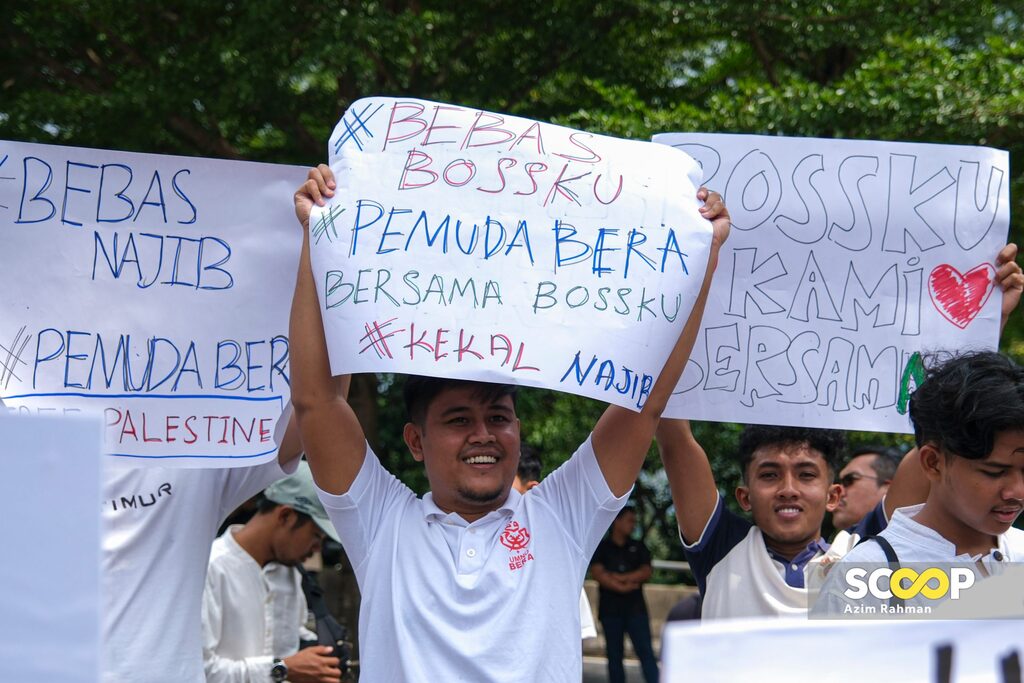 #BEBAS
NAJIB
#PEMUDA BER
FREE PALESTINE
TIMUR
#BEBAS
BOSSKU
#PEMUDA BERA
BERSAMA BOSSKU
#KEKAL NAJIB
BOSSKU
KAMi
BERSAMA
UMNO
BERA
SCOOP
Azim Rahman